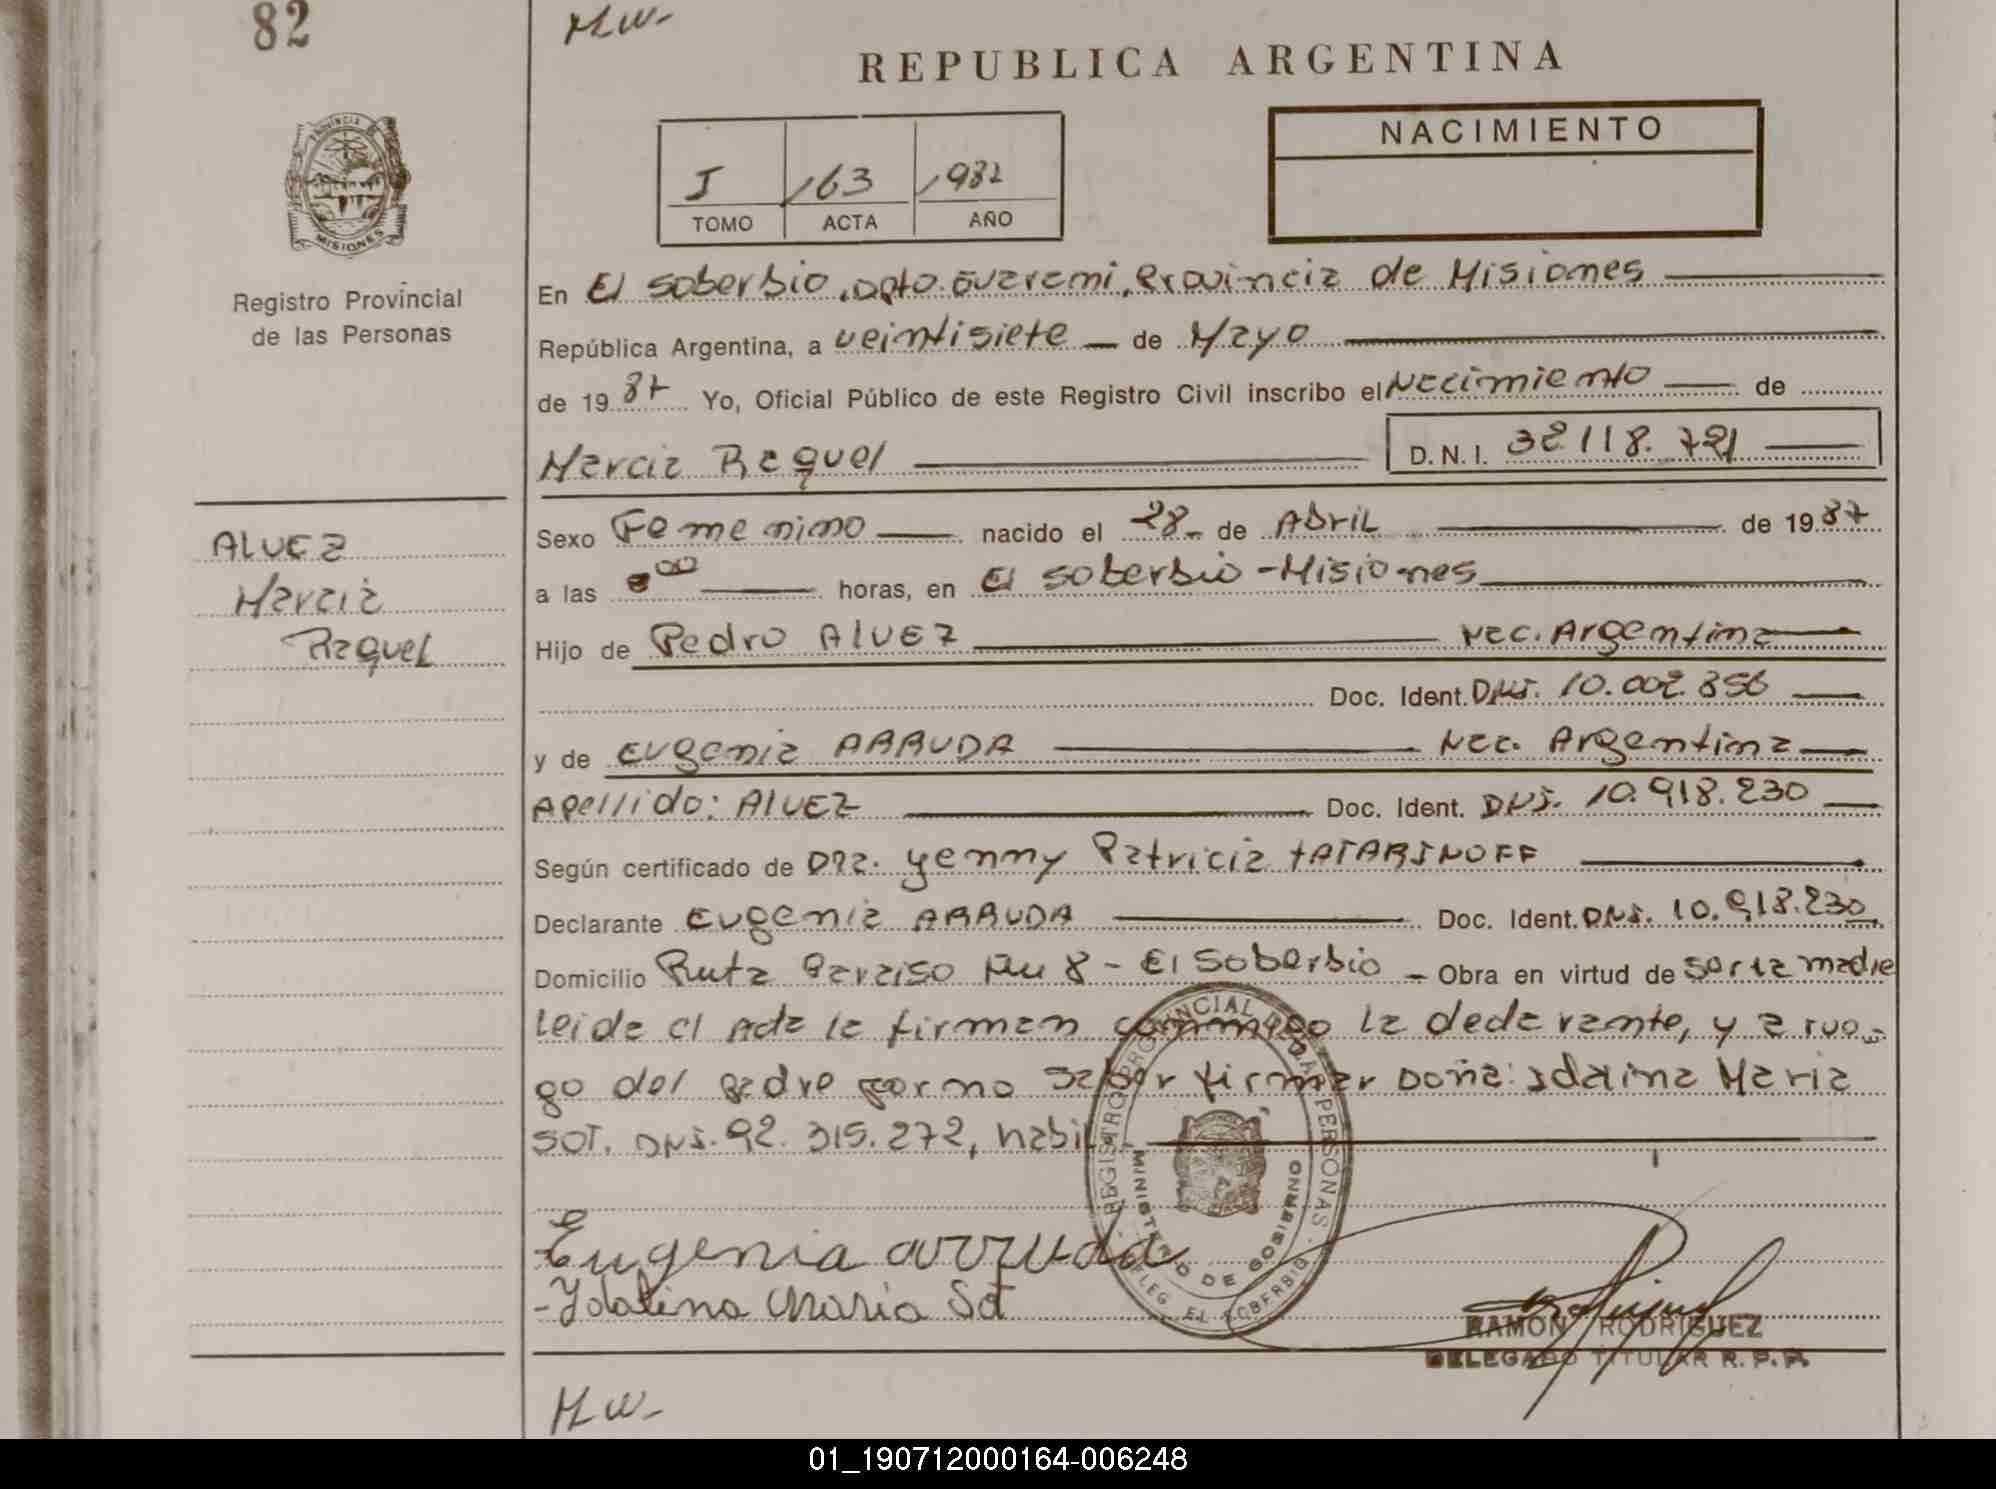 82
M.W.-
REPUBLICA ARGENTINA
I 163 1987
TOMO ACTA AÑO
NACIMIENTO
PROVINCIA DE MISIONES
Registro Provincial
de las Personas
En El Soberbio, Dpto. Guarami, Provincia de Misiones
República Argentina, a veintisiete de Mayo
de 1987 Yo, Oficial Público de este Registro Civil inscribo el Nacimiento de
Marcia Raquel D.N.I. 32.118.721
ALVEZ
Marcia
Raquel
Sexo Femenino nacido el 28- de Abril de 1987
a las horas, en El Soberbio - Misiones
Hijo de Pedro ALVEZ Nac. Argentina
Doc. Ident. DNI. 10.002.856
y de Eugenia ARRUDA Nac. Argentina
Apellido: ALVEZ Doc. Ident. DNI. 10.918.230
Según certificado de Dra. Yenny Patricia TATARINOFF
Declarante Eugenia ARRUDA Doc. Ident. DNI. 10.918.230
Domicilio Ruta Paraiso Km 8 - El Soberbio - Obra en virtud de ser la madre
leida el Acta la firman conmigo la declarante, y a rue=
go del padre por no saber firmar Doña: Idalina Maria
SOT. DNI. 92.315.272, habil.-
REGISTRO PROVINCIAL DE LAS PERSONAS
MINISTERIO DE GOBIERNO
DELEG. EL SOBERBIO
Eugenia arruda
-Idalina Maria Sot
RAMON RODRIGUEZ
DELEGADO TITULAR R. P. P.
M.W.-
01_190712000164-006248